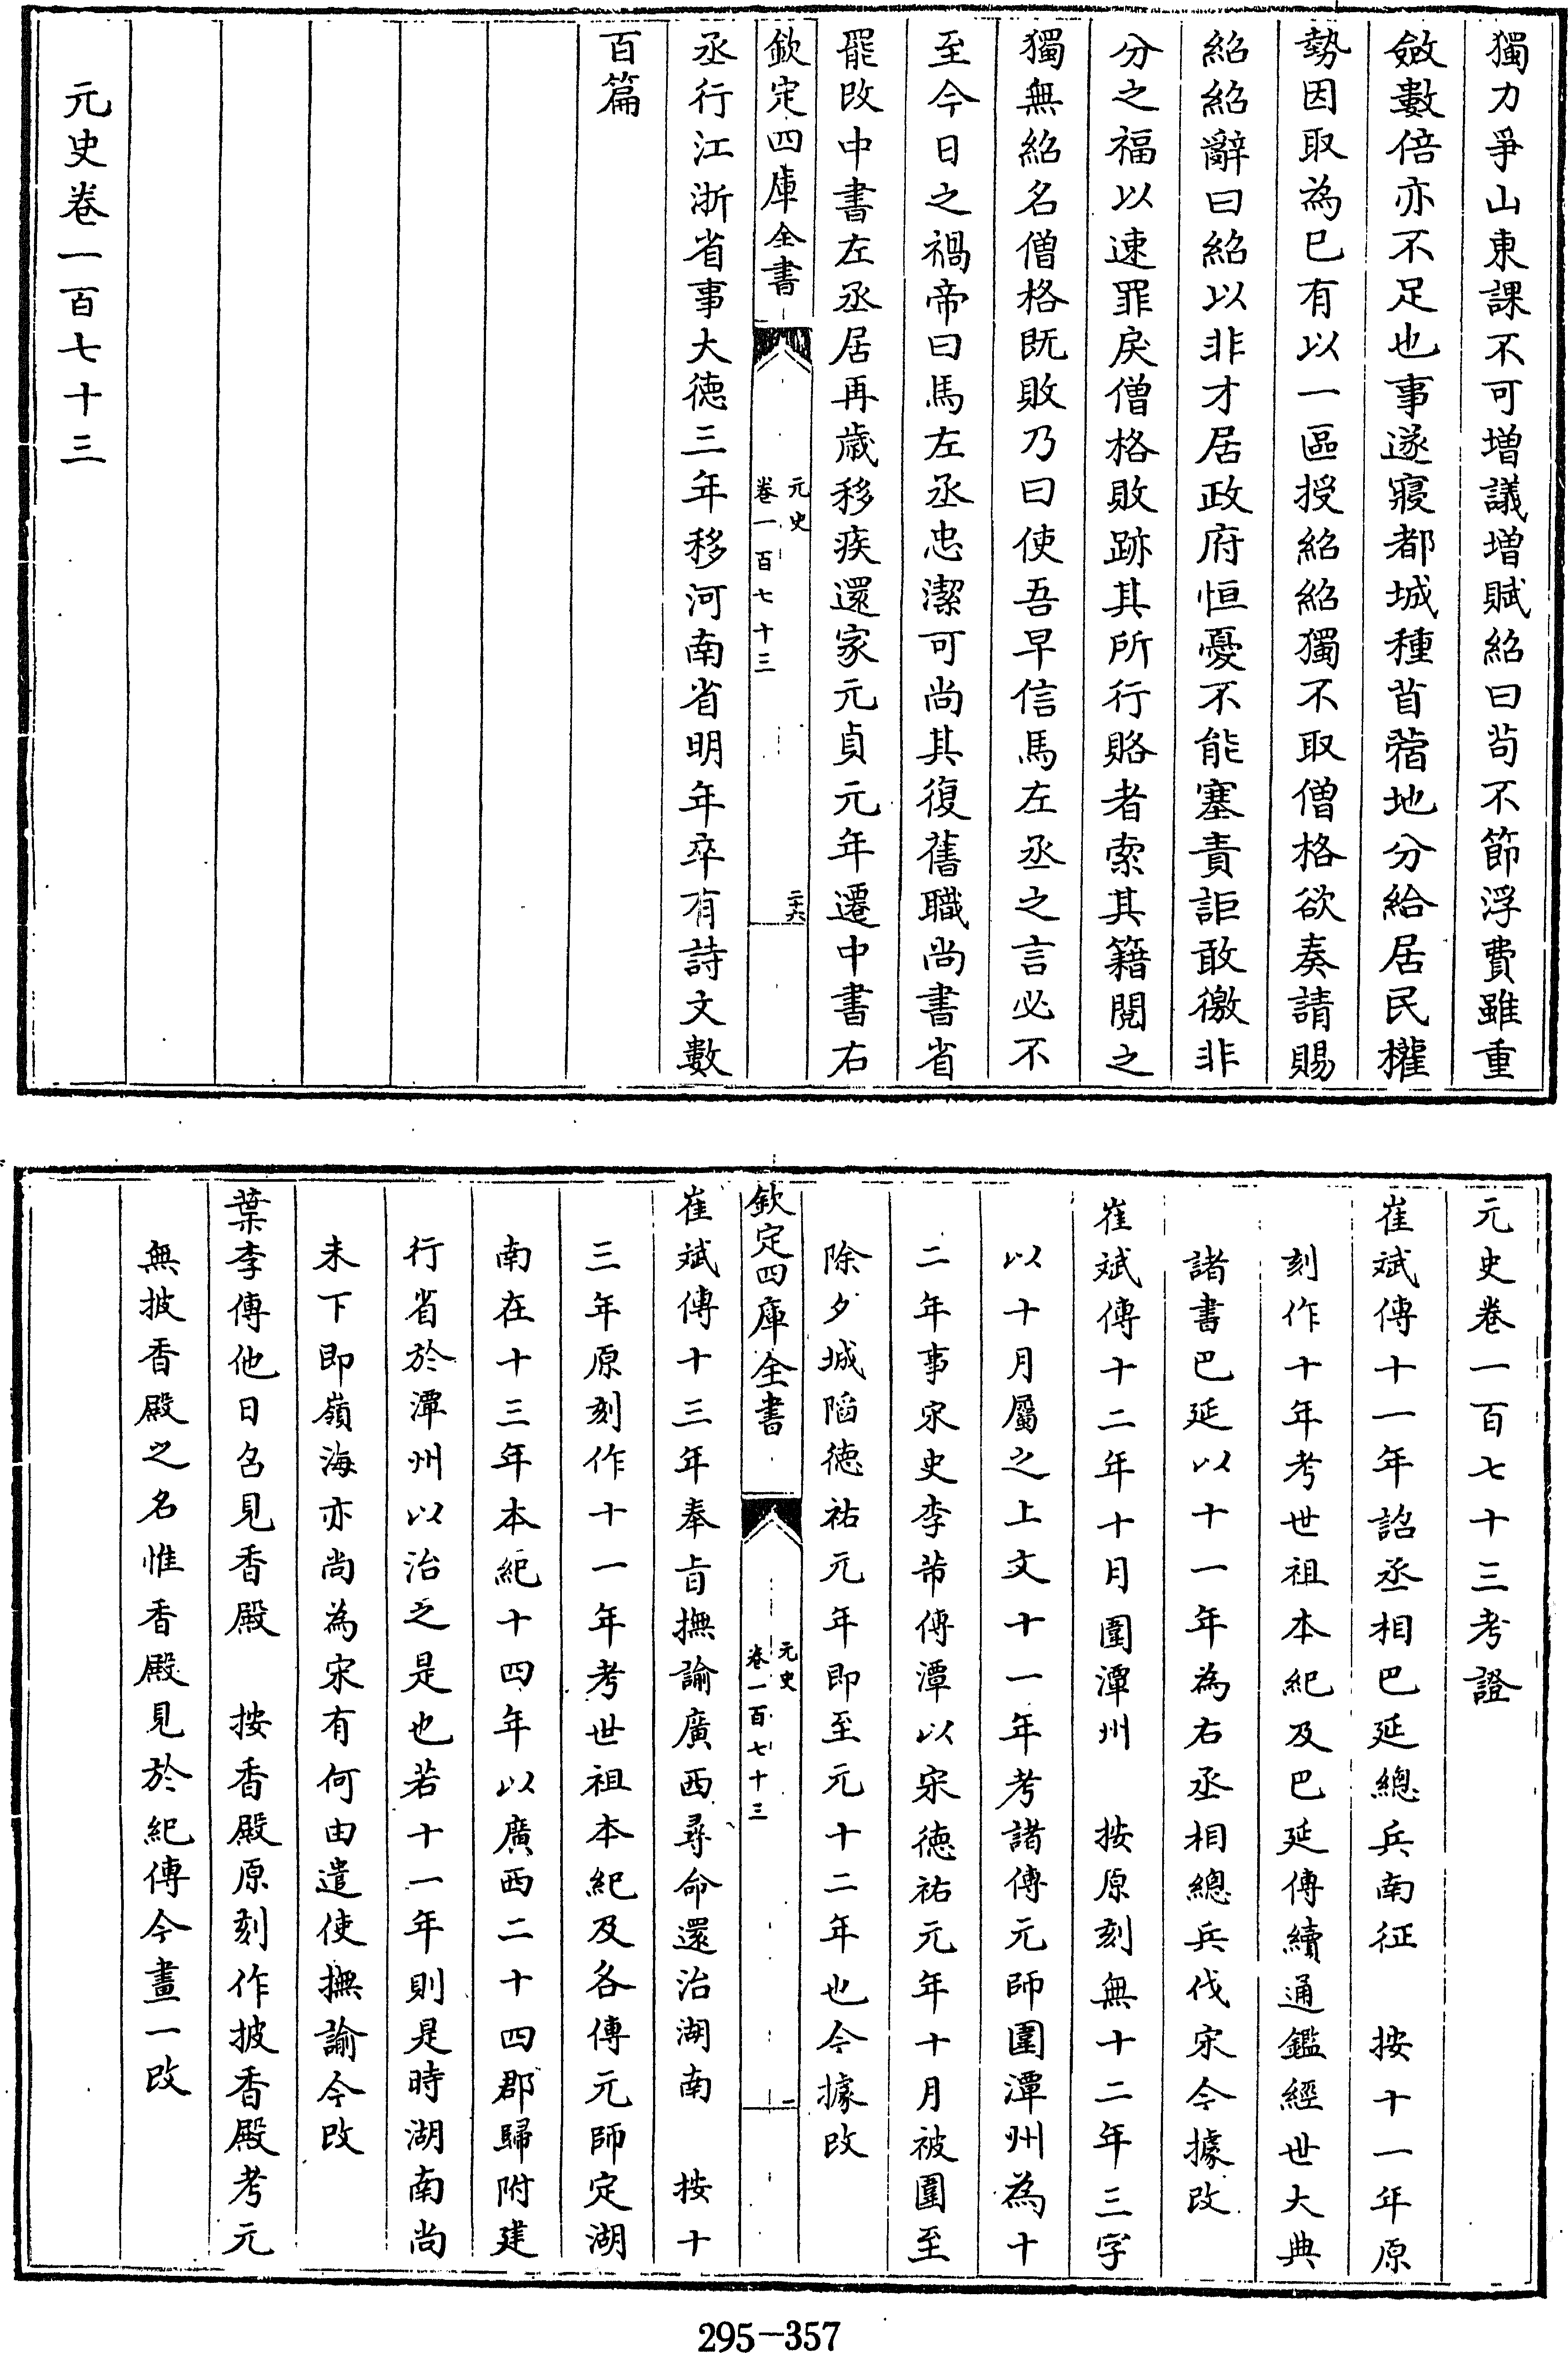 獨力爭山東課不可增議增賦紹曰茍不節浮費雖重
斂數倍亦不足也事遂寢都城種苜蓿地分給居民權
勢因取為已有以一區授紹紹獨不取僧格欲奏請賜
紹紹辭曰紹以非才居政府恒憂不能塞責詎敢徼非
分之福以速罪戾僧格敗跡其所行賂者索其籍閱之
獨無紹名僧格既敗乃曰使吾早信馬左丞之言必不
至今日之禍帝曰馬左丞忠潔可尚其復舊職尚書省
罷改中書左丞居再歲移疾還家元貞元年遷中書右
欽定四庫全書
元史
卷一百七十三
二十六
丞行江浙省事大德三年移河南省明年卒有詩文數
百篇
元史卷一百七十三
元史卷一百七十三考證
崔斌傳十一年詔丞相巴延總兵南征 按十一年原
刻作十年考世祖本紀及巴延傳續通鑑經世大典
諸書巴延以十一年為右丞相總兵伐宋今據改
崔斌傳十二年十月圍潭州 按原刻無十二年三字
以十月屬之上文十一年考諸傳元師圍潭州為十
二年事宋史李芾傳潭以宋德祐元年十月被圍至
除夕城陷德祐元年即至元十二年也今據改
欽定四庫全書
元史
卷一百七十三
一
崔斌傳十三年奉旨撫諭廣西尋命還治湖南 按十
三年原刻作十一年考世祖本紀及各傳元師定湖
南在十三年本紀十四年以廣西二十四郡歸附建
行省於潭州以治之是也若十一年則是時湖南尚
未下即嶺海亦尚為宋有何由遣使撫諭今改
葉李傳他日召見香殿 按香殿原刻作披香殿考元
無披香殿之名惟香殿見於紀傳今畫一改
295-357